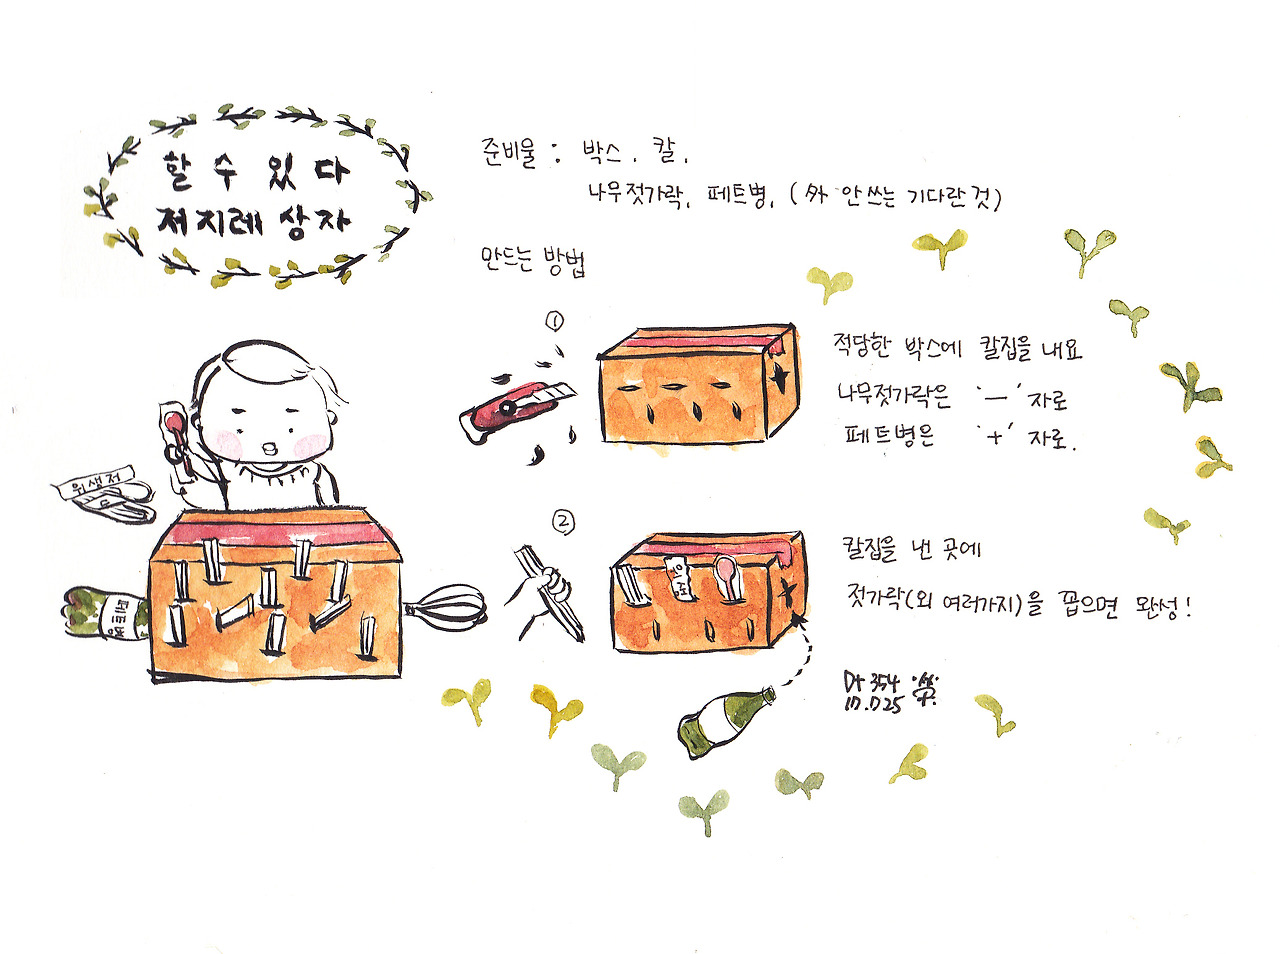 할 수 있 다
저지레 상자
준비물 : 박스 . 칼 .
나무젓가락, 페트병, ( 外 안쓰는 기다란 것 )
만드는 방법
①
적당한 박스에 칼집을 내요
나무젓가락은 '一' 자로
페트병은 '+' 자로.
위생저
페트병
②
칼집을 낸 곳에
젓가락(외 여러가지)을 꼽으면 완성!
D+354